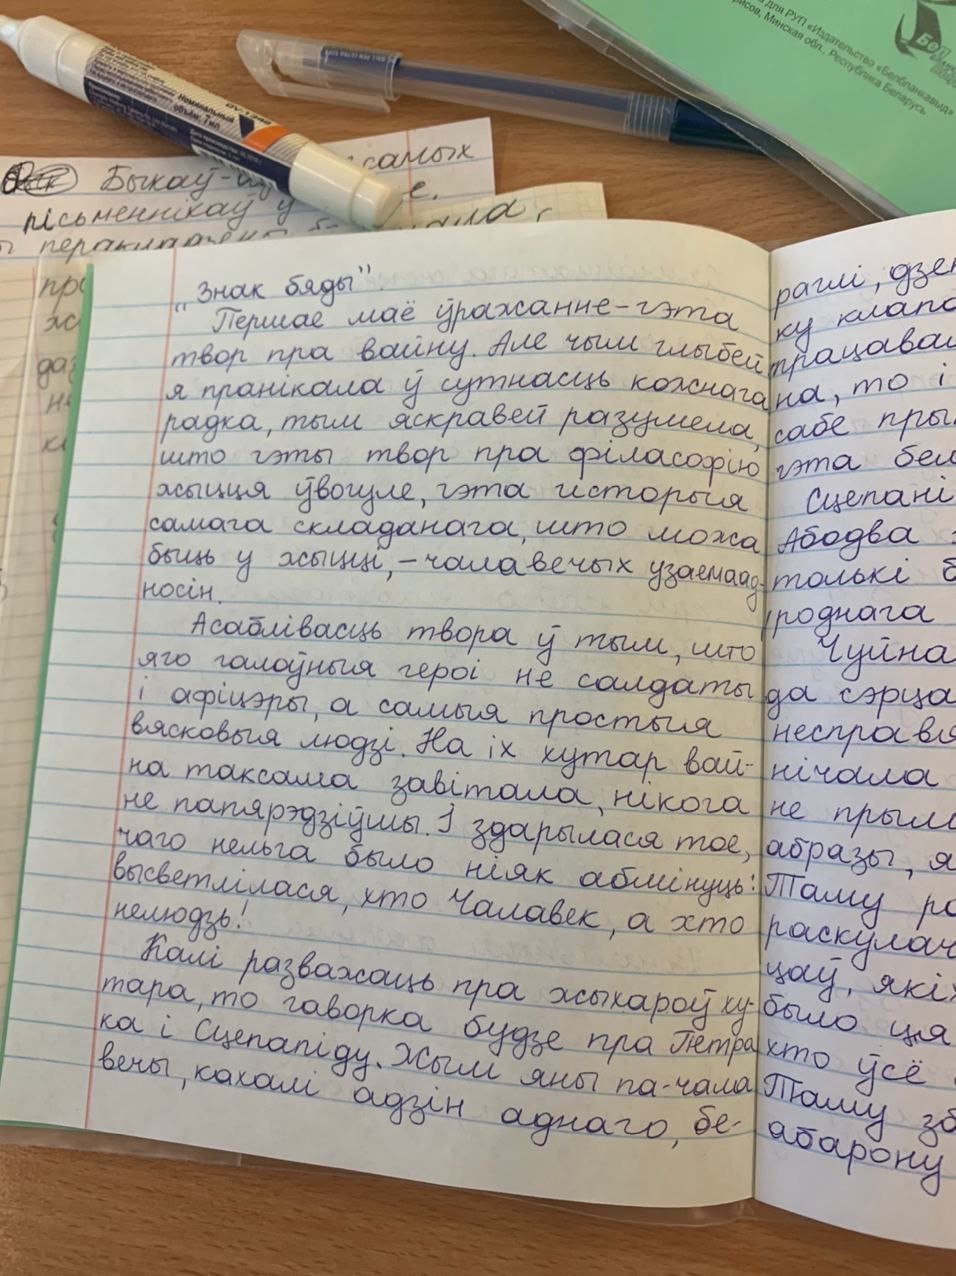 для РУП «Издательство «Белбланкавыд»
Минская обл., Республика Беларусь
Номинальный
объём: 7 мл
Быкаў- самых
пісьменнікаў у
"Знак бяды"
Першае маё ўражанне-гэта
твор пра вайну. Але чым глыбей
я пранікала ў сутнасць кожнага
радка, тым яскравей разумела,
што гэты твор пра філасофію
жыцця ўвогуле, гэта гісторыя
самага складанага, што можа
быць у жыцці,-чалавечых узаемаад-
носін.
Асаблівасць твора ў тым, што
яго галоўныя героі не салдаты
і афіцэры, а самыя простыя
вясковыя людзі. На іх хутар вай-
на таксама завітала, нікога
не папярэдзіўшы. І здарылася тое,
чаго нельга было ніяк абмінуць:
высветлілася, хто Чалавек, а хто
нелюдзь!
Калі разважаць пра жыхароў ху-
тара, то гаворка будзе пра Петра
ка і Сцепаніду. Жылі яны па-чала
вечы, кахалі адзін аднаго, бе-
раглі,
ку
на, то і
сабе
гэта
Сцепані
Абодва
толькі
роднага
Чуйна
да сэрца
нічама
не
абразы,
Таму
было ця
хто ўсё
Таму
абарону